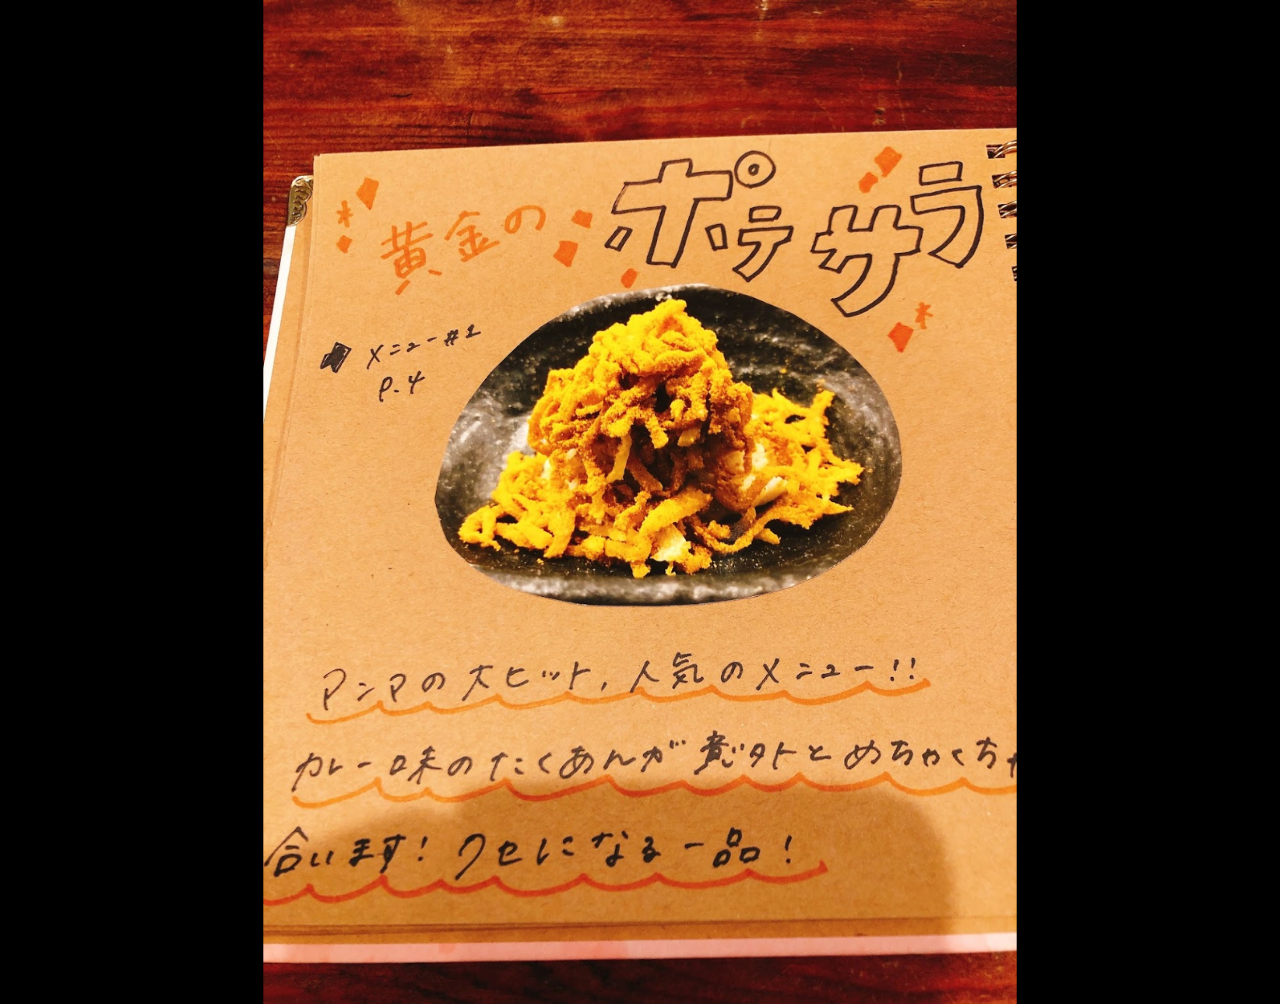 黄金の ポテサラ
メニュー#1
P.4
アンマの大ヒット,人気のメニュー!!
カレー味のたくあんが とめちゃくちゃ
合います!クセになる一品!